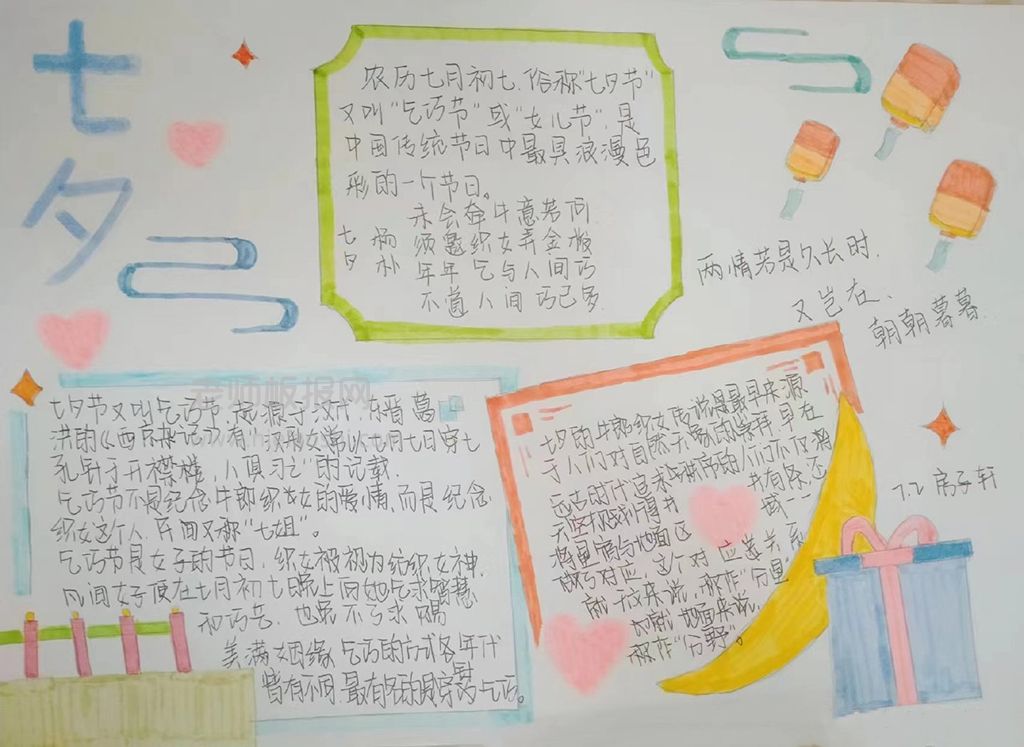 七夕
农历七月初七,俗称"七夕节"
又叫"乞巧节"或"女儿节",是
中国传统节日中最具浪漫色
彩的一个节日。
七夕
杨朴
未会牵牛意若何
须邀织女弄金梭
年年乞与人间巧
不道人间巧已多.
两情若是久长时,
又岂在、
朝朝暮暮.
老师板报网
七夕节又叫乞巧节,起源于汉代,东晋葛
洪的《西京杂记》有"汉彩女常以七月七日穿七
孔针于开襟楼,人俱习之"的记载.
乞巧节不是纪念牛郎织女的爱情,而是纪念
织女这个人,民间又称"七姐"。
乞巧节是女子的节日,织女被视为纺织女神,
民间女子便在七月初七晚上向她乞求智慧
和巧艺,也免不了求赐
美满姻缘,乞巧的方式各年代
皆有不同,最有名的是穿针乞巧。
七夕的牛郎织女传说是最早来源
于人们对自然天象的崇拜,早在
远古时代
将星
就天文来说,称作"分星"
就地面来说,
称作"分野"。
7.2 房子轩